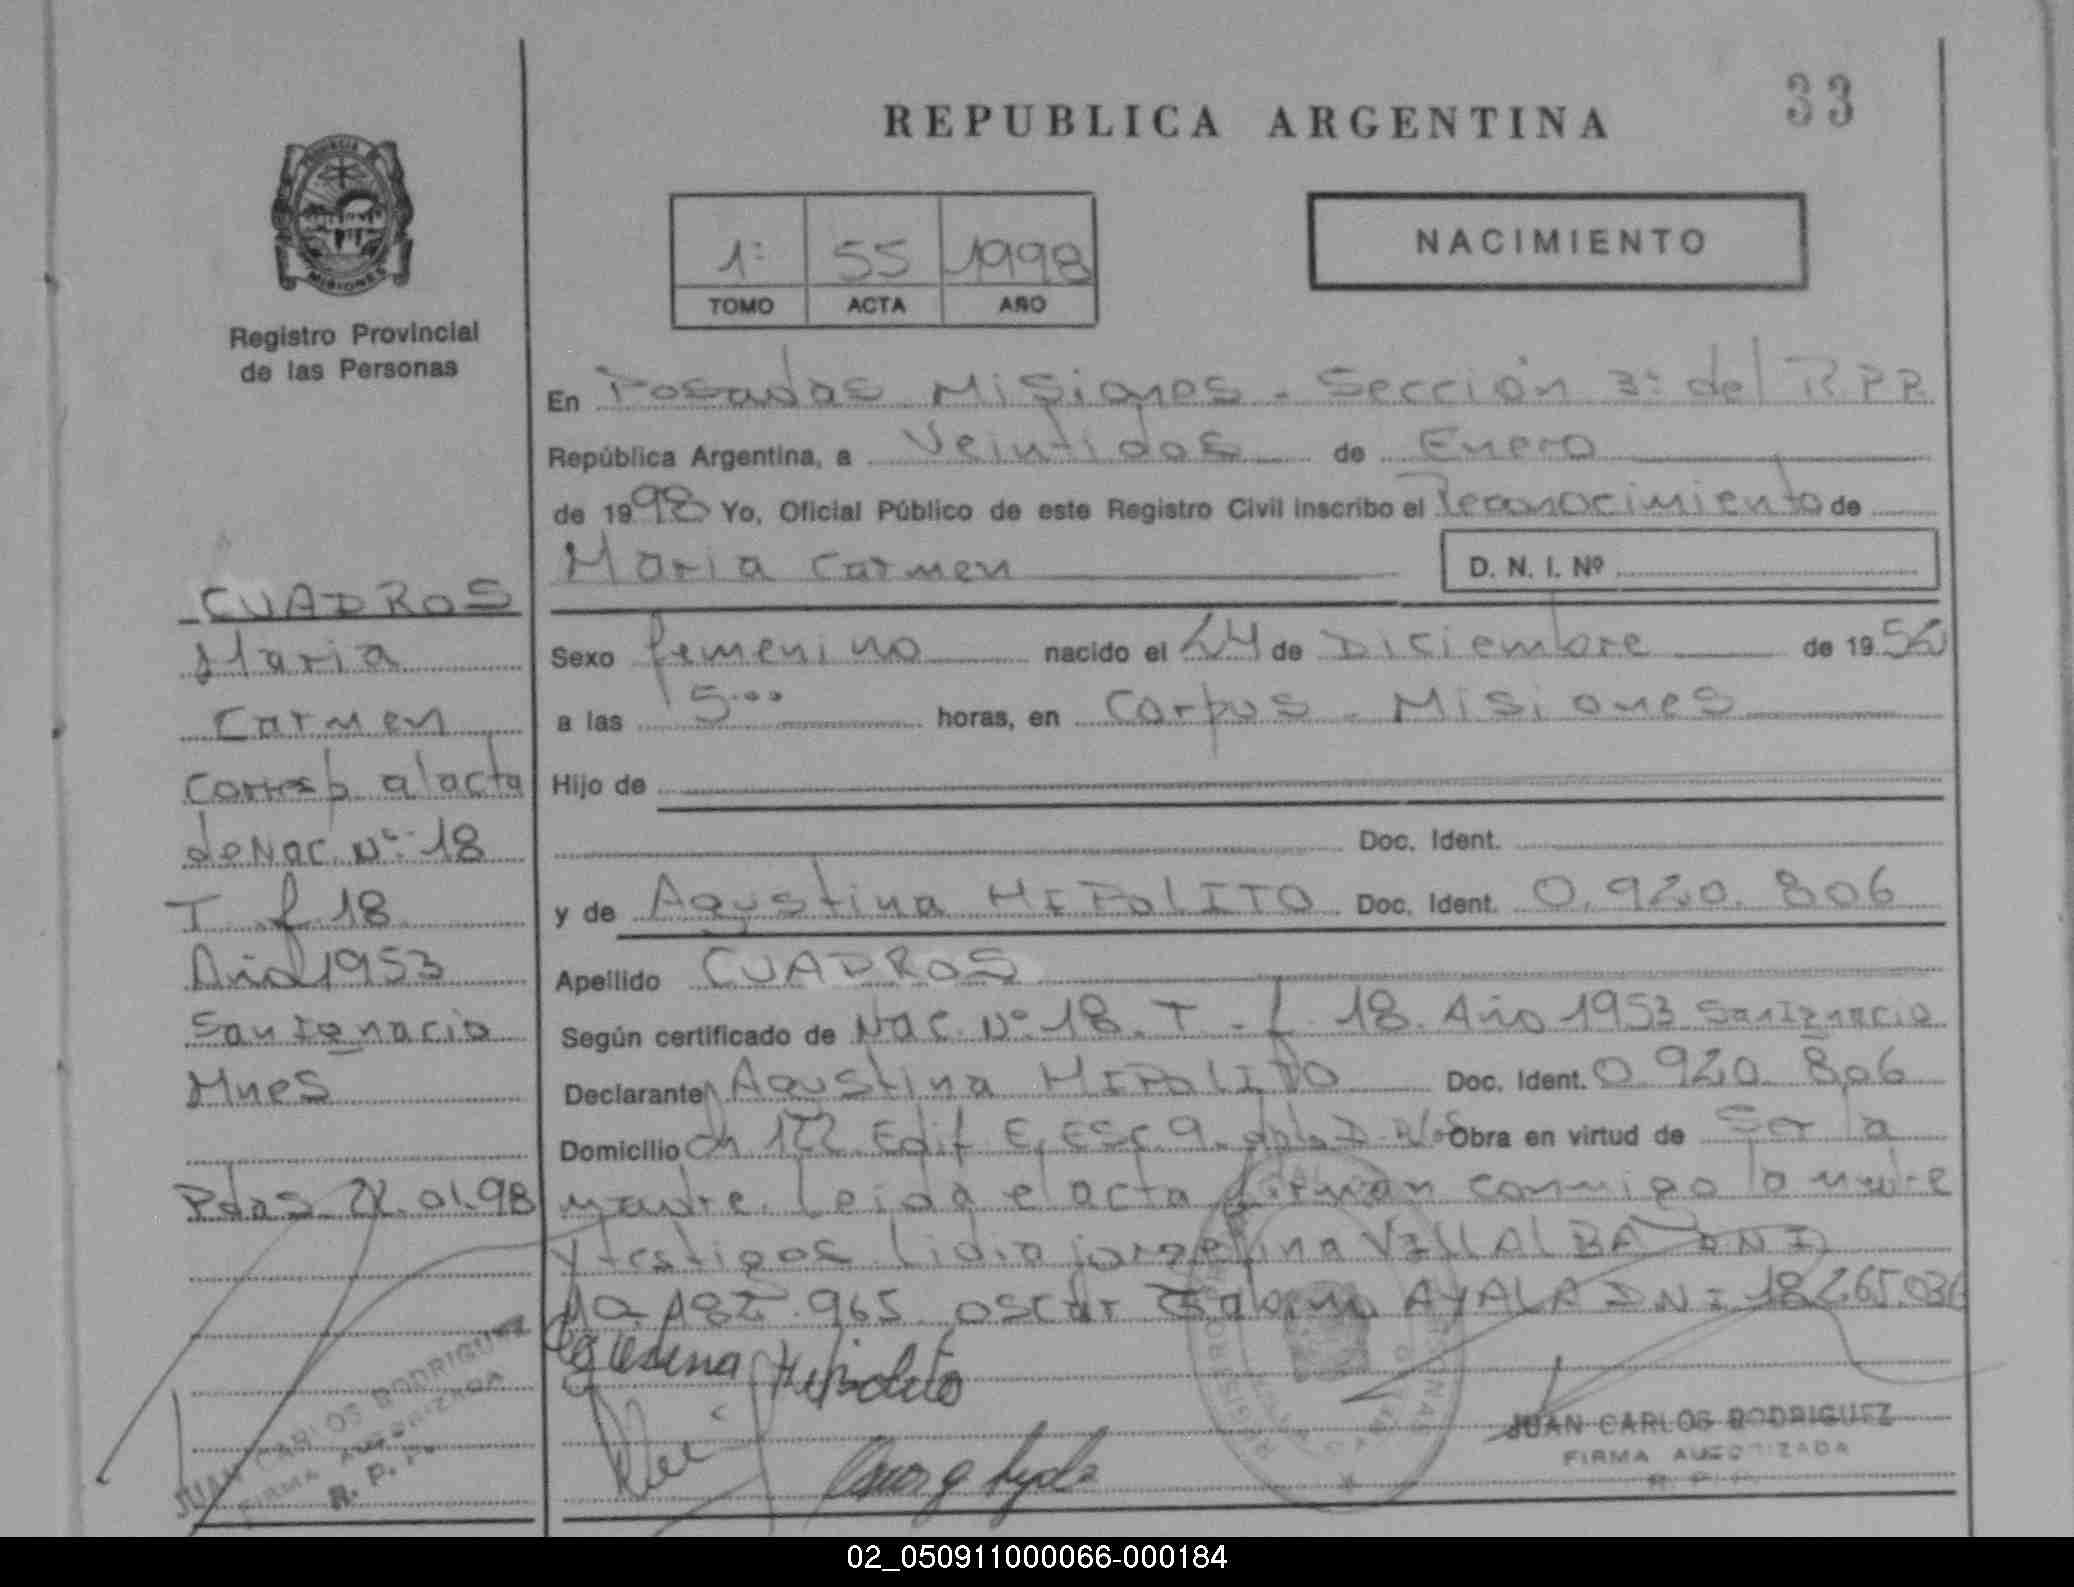 33
REPUBLICA ARGENTINA
PROVINCIA DE
MISIONES
Registro Provincial
de las Personas
1º 55 1998
TOMO ACTA AÑO
NACIMIENTO
En Posadas Misiones - Sección 3º del RPP
República Argentina, a Veintidos de Enero
de 1998 Yo, Oficial Público de este Registro Civil inscribo el Reconocimiento de
Maria Carmen D. N. I. Nº
Sexo femenino nacido el 24 de Diciembre de 19
a las 5·00 horas, en Corpus - Misiones
Hijo de
Doc. Ident.
y de Agustina HIPOLITO Doc. Ident. 0.920.806
Apellido CUADROS
Según certificado de Nac. Nº 18. T - f. 18. Año 1953 San Ignacio
Declarante Agustina HIPOLITO Doc. Ident. 0.920.806
Domicilio Ch 122 Edif E, ESC 9. Obra en virtud de Ser la
madre. Leida el acta firman conmigo la madre
y testigos Lidia VILLALBA DNI
965 oscar AYALA DNI 18.265.036
Agustina Hipolito
JUAN CARLOS RODRIGUEZ
FIRMA AUTORIZADA
R. P. P.
CUADROS
Maria
Carmen
Corresp al acta
de Nac. Nº 18
T f 18
Año 1953
San Ignacio
Mnes
Pdas 22.01.98
JUAN CARLOS RODRIGUEZ
FIRMA AUTORIZADA
R. P. P.
02_050911000066-000184